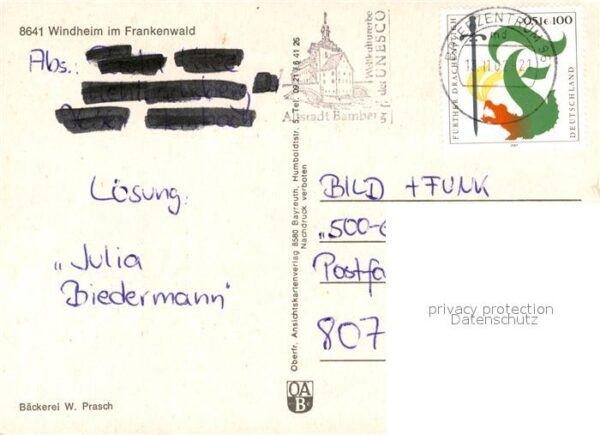 8641 Windheim im Frankenwald
Abs.:
Lösung:
"Julia
Biedermann"
Bäckerei W. Prasch
Oberfr. Ansichtskartenverlag 8580 Bayreuth, Humboldtstr. 5, Tel. 09 21/6 41 26
Nachdruck verboten
OA
B
Weltkulturerbe
der UNESCO
Altstadt Bamberg
BRIEFZENTRUM 96
21
FURTHER DRACHENSTICH
0,51€ 100
DEUTSCHLAND
2001
BILD + FUNK
"500-
Postfa
807
privacy protection
Datenschutz